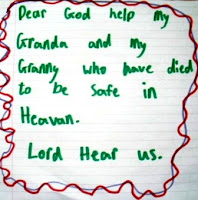 Dear God help my
Granda and my
Granny who have died
to be safe in
Heavan.
Lord Hear us.